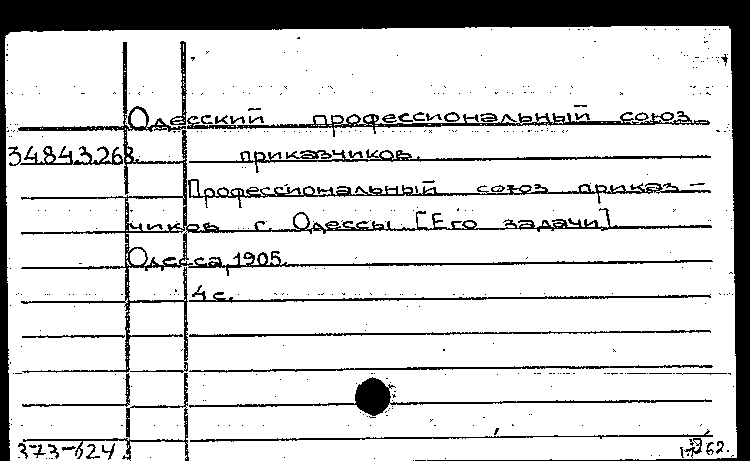 Одесский профессиональный союз
34.843.268. приказчиков.
Профессиональный союз приказ-
чиков г. Одессы. [Его задачи].
Одесса, 1905.
4 с.
373-624